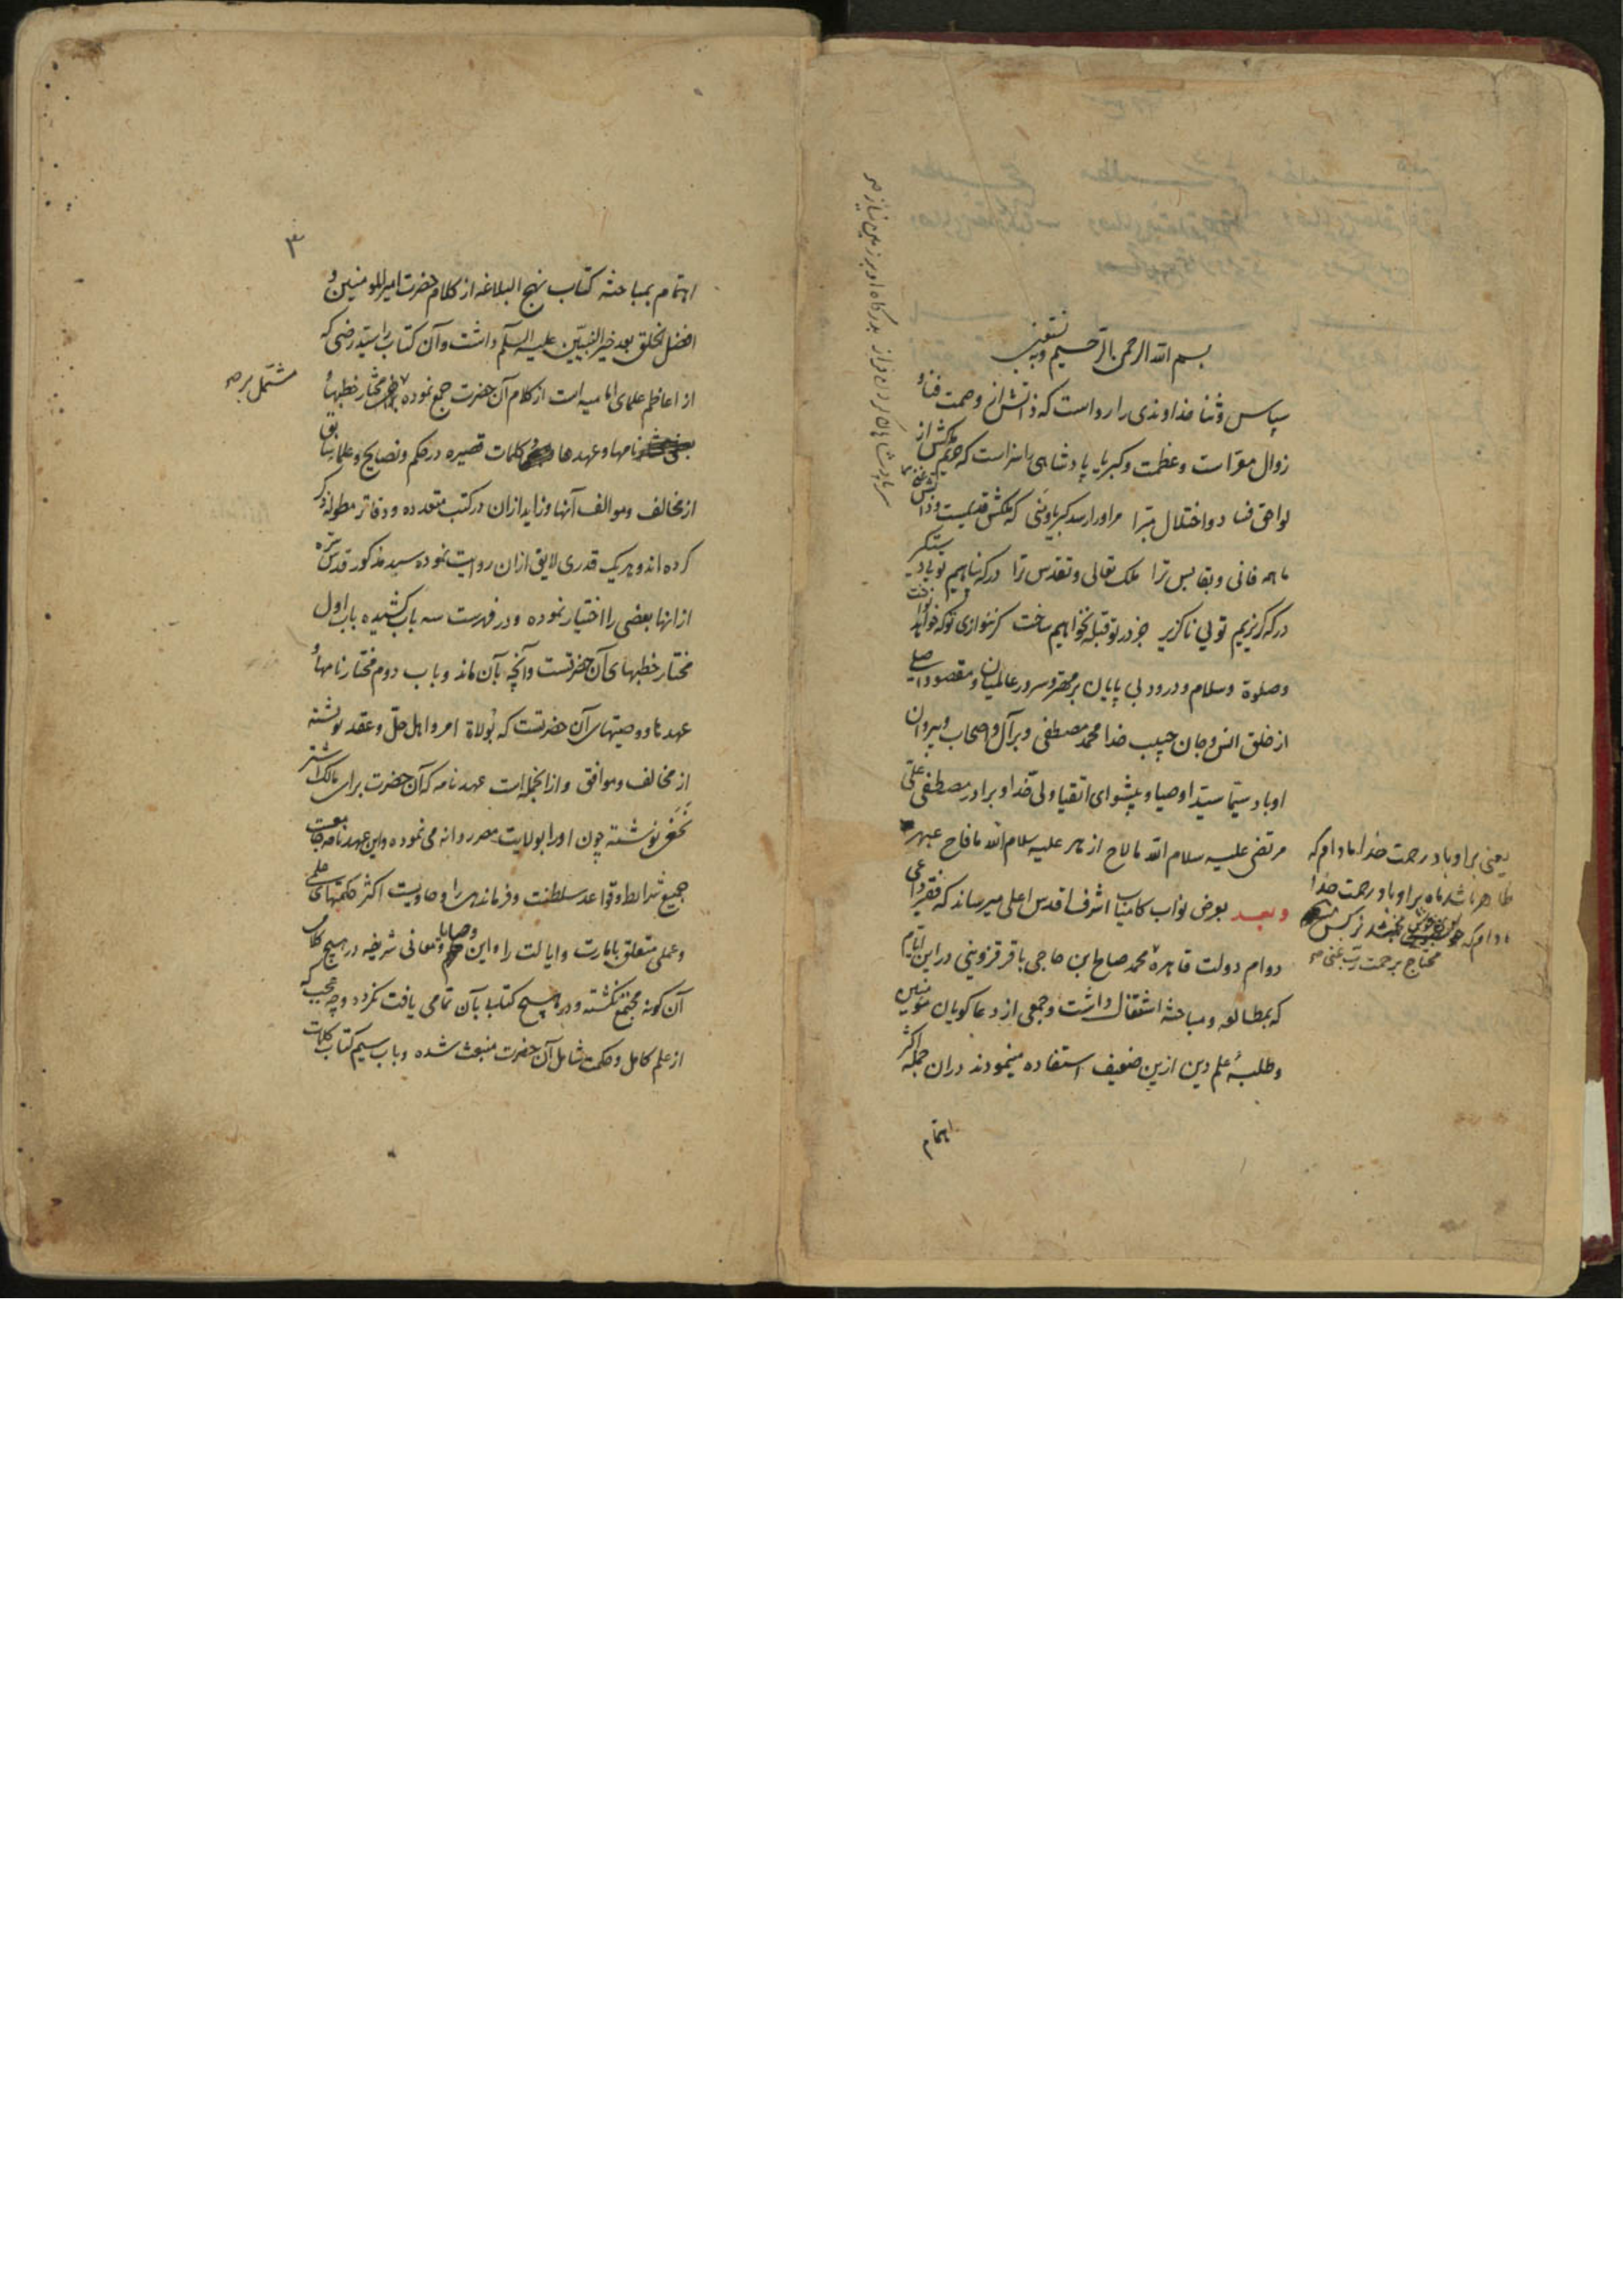 بسم الله الرحمن الرحیم وبه نستعین
سپاس و ثنا خداوندی را رواست که ذاتش از وصمت فنا و
زوال معرّاست و عظمت و کبریا پادشاهی را سزاست که حریم ملکش از
لواحق فساد و اختلال مبرّا مر او را رسد کبریا و منی که ملکش قدیمست و ذاتش غنی
ما همه فانی و بقا بس ترا ملک تعالی و تقدس ترا درکه پناهیم تویی دستکیر
درکه کریزیم تویی ناکزیر جز در تو قبله نخواهیم ساخت کر ننوازی تو که خواهد نواخت
وصلوة وسلام ودرود بی پایان بر مهتر و سرور عالمیان و مقصود اصلی
از خلق انس وجان حبیب خدا محمد مصطفی و بر آل واصحاب و پیروان
او باد سیّما سیّد اوصیا و پیشوای اتقیا ولیّ خدا و برادر مصطفی علیّ
مرتضی علیه سلام الله ما لاح ازهر علیه سلام الله ما فاح عبهر
وبعد بعرض نواب کامیاب اشرف اقدس اعلی میرساند که فقیر داعی
دوام دولت قاهره محمد صالح ابن حاجی باقر قزوینی در این ایّام
که بمطالعه ومباحثه اشتغال داشت وجمعی از دعاکویان مومنین
وطلبهٔ علم دین ازین ضعیف استفاده مینمودند دران جمله اکثر
اهتمام
سر پادشاهان کردن فراز بدرکاه او بر زمین نیاز صح
یعنی بر او باد رحمت خدا مادام که
ظاهر باشد ماه بر او باد رحمت خدا
مادام که خوش بخشد نرکس
محتاج برحمت ربّ غنی صح
۳
اهتمام بمباحثه کتاب نهج البلاغه از کلام حضرت امیرالمومنین و
افضل الخلق بعد خیر النبیّین علیه السلم داشت وآن کتاب را سیّد رضی که
از اعاظم علمای امامیه است از کلام آن حضرت جمع نموده مختار خطبها و
نامها وعهدها و کلمات قصیره در حکم ونصایح وعلما سابق
از مخالف وموالف آنها وزاید ازان در کتب متعدده ودفاتر مطوله ذکر
کرده اند وهر یک قدری لایق ازان روایت نموده سید مذکور قدس سرّه
از انها بعضی را اختیار نموده و در فهرست سه باب کشیده باب اول
مختار خطبهای آن حضرتست وآنچه بآن ماند وباب دوم مختار نامها و
عهدها ووصیتهای آن حضرتست که بولاة امر واهل حلّ وعقد نوشته
از مخالف وموافق وازانجمله است عهدنامه که آن حضرت برای مالک اشتر
نخعی نوشته چون او را بولایت مصر روانه می نموده واین عهدنامه جامعست
جمیع شرایط وقواعد سلطنت وفرماندهی را وحاویست اکثر حکمتهای علمی
وعملی متعلق بامارت وایالت را واین وصایا ومعانی شریفه در هیچ کلام
آن کونه مجتمع نکشته ودر هیچ کتاب بآن تمامی یافت نکردد وچه عجب که
از علم کامل وحکمت شامل آن حضرت منبعث شده وباب سیم کتاب کلمات
مشتمل بر صح